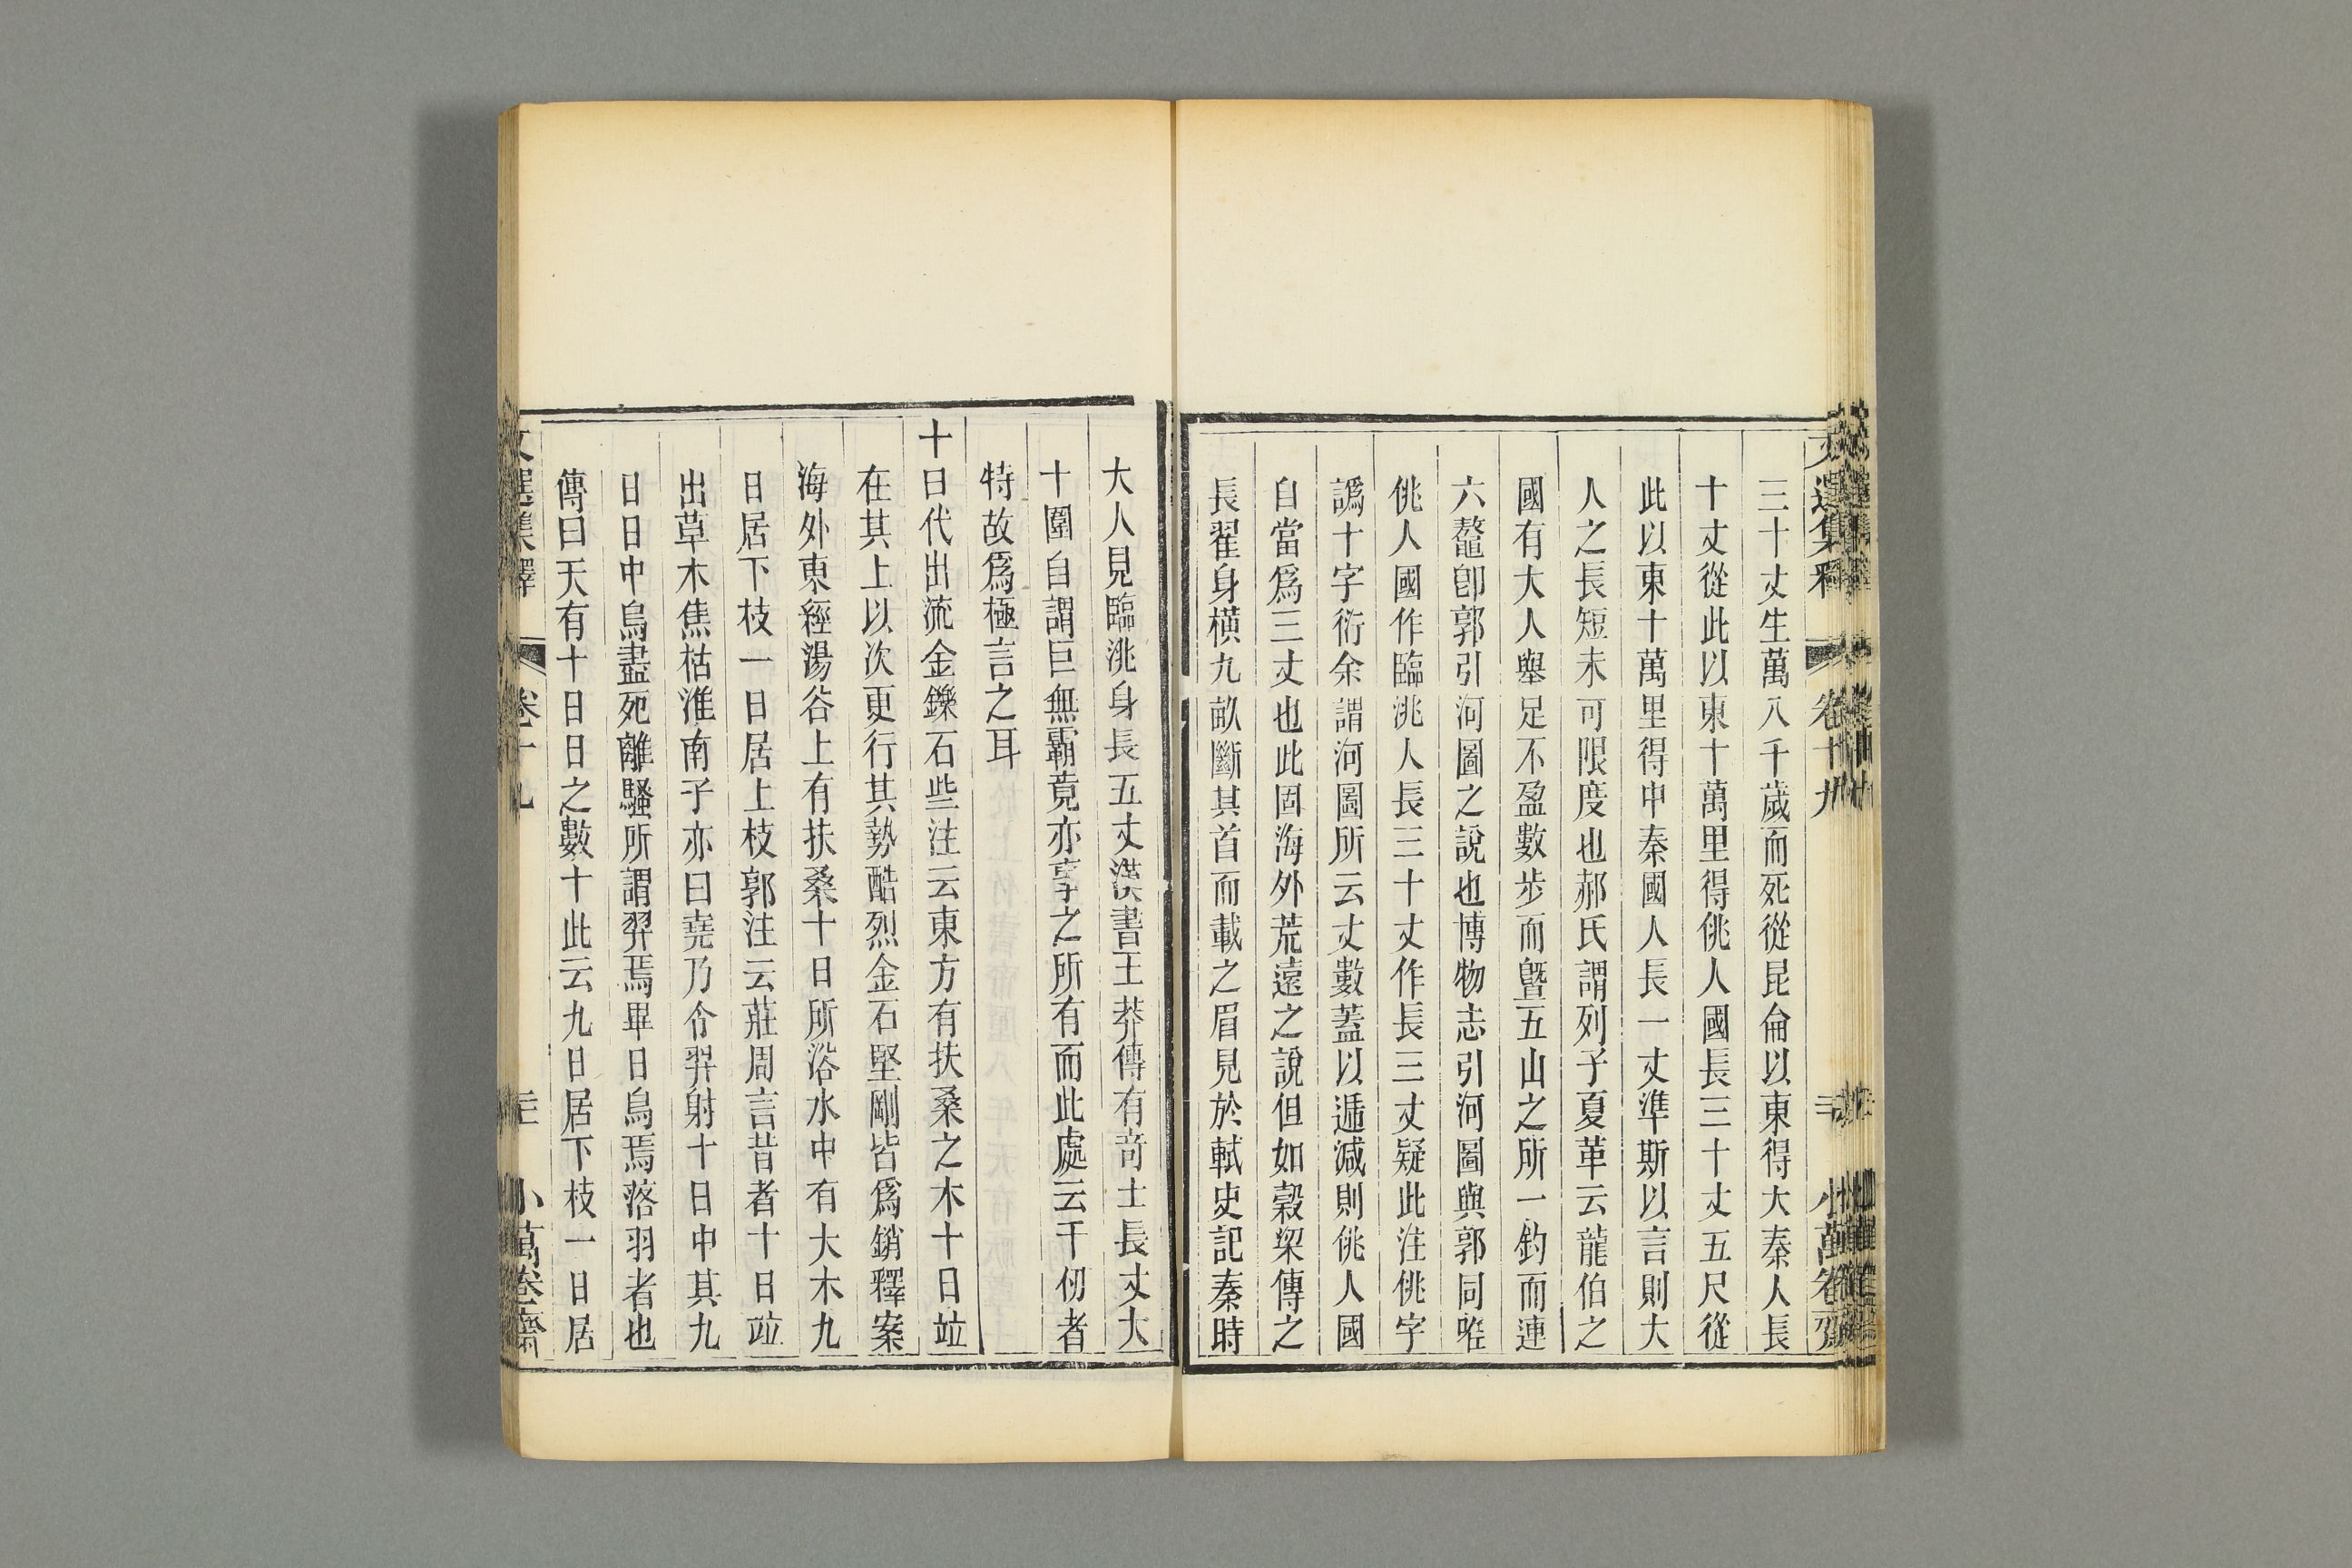 三十丈生萬八千歲而死從昆侖以東得大秦人長
十丈從此以東十萬里得佻人國長三十丈五尺從
此以東十萬里得中秦國人長一丈準斯以言則大
人之長短未可限度也郝氏謂列子夏革云龍伯之
國有大人舉足不盈數步而曁五山之所一釣而連
六鼇卽郭引河圖之說也博物志引河圖與郭同唯
佻人國作臨洮人長三十丈作長三丈疑此注佻字
譌十字衍余謂河圖所云丈數蓋以遞減則佻人國
自當爲三丈也此固海外荒遠之說但如穀梁傳之
長翟身横九畝斷其首而載之眉見於軾史記秦時
大人見臨洮身長五丈漢書王莽傳有奇士長丈大
十圍自謂巨無霸竟亦享之所有而此處云千仞者
特故爲極言之耳
十日代出流金鑠石些注云東方有扶桑之木十日竝
在其上以次更行其勢酷烈金石堅剛皆爲銷釋案
海外東經湯谷上有扶桑十日所浴水中有大木九
日居下枝一日居上枝郭注云莊周言昔者十日竝
出草木焦枯淮南子亦曰堯乃令羿射十日中其九
日日中烏盡死離騷所謂羿焉畢日烏焉落羽者也
傳曰天有十日日之數十此云九日居下枝一日居
文選集釋
卷十九
小萬卷齋